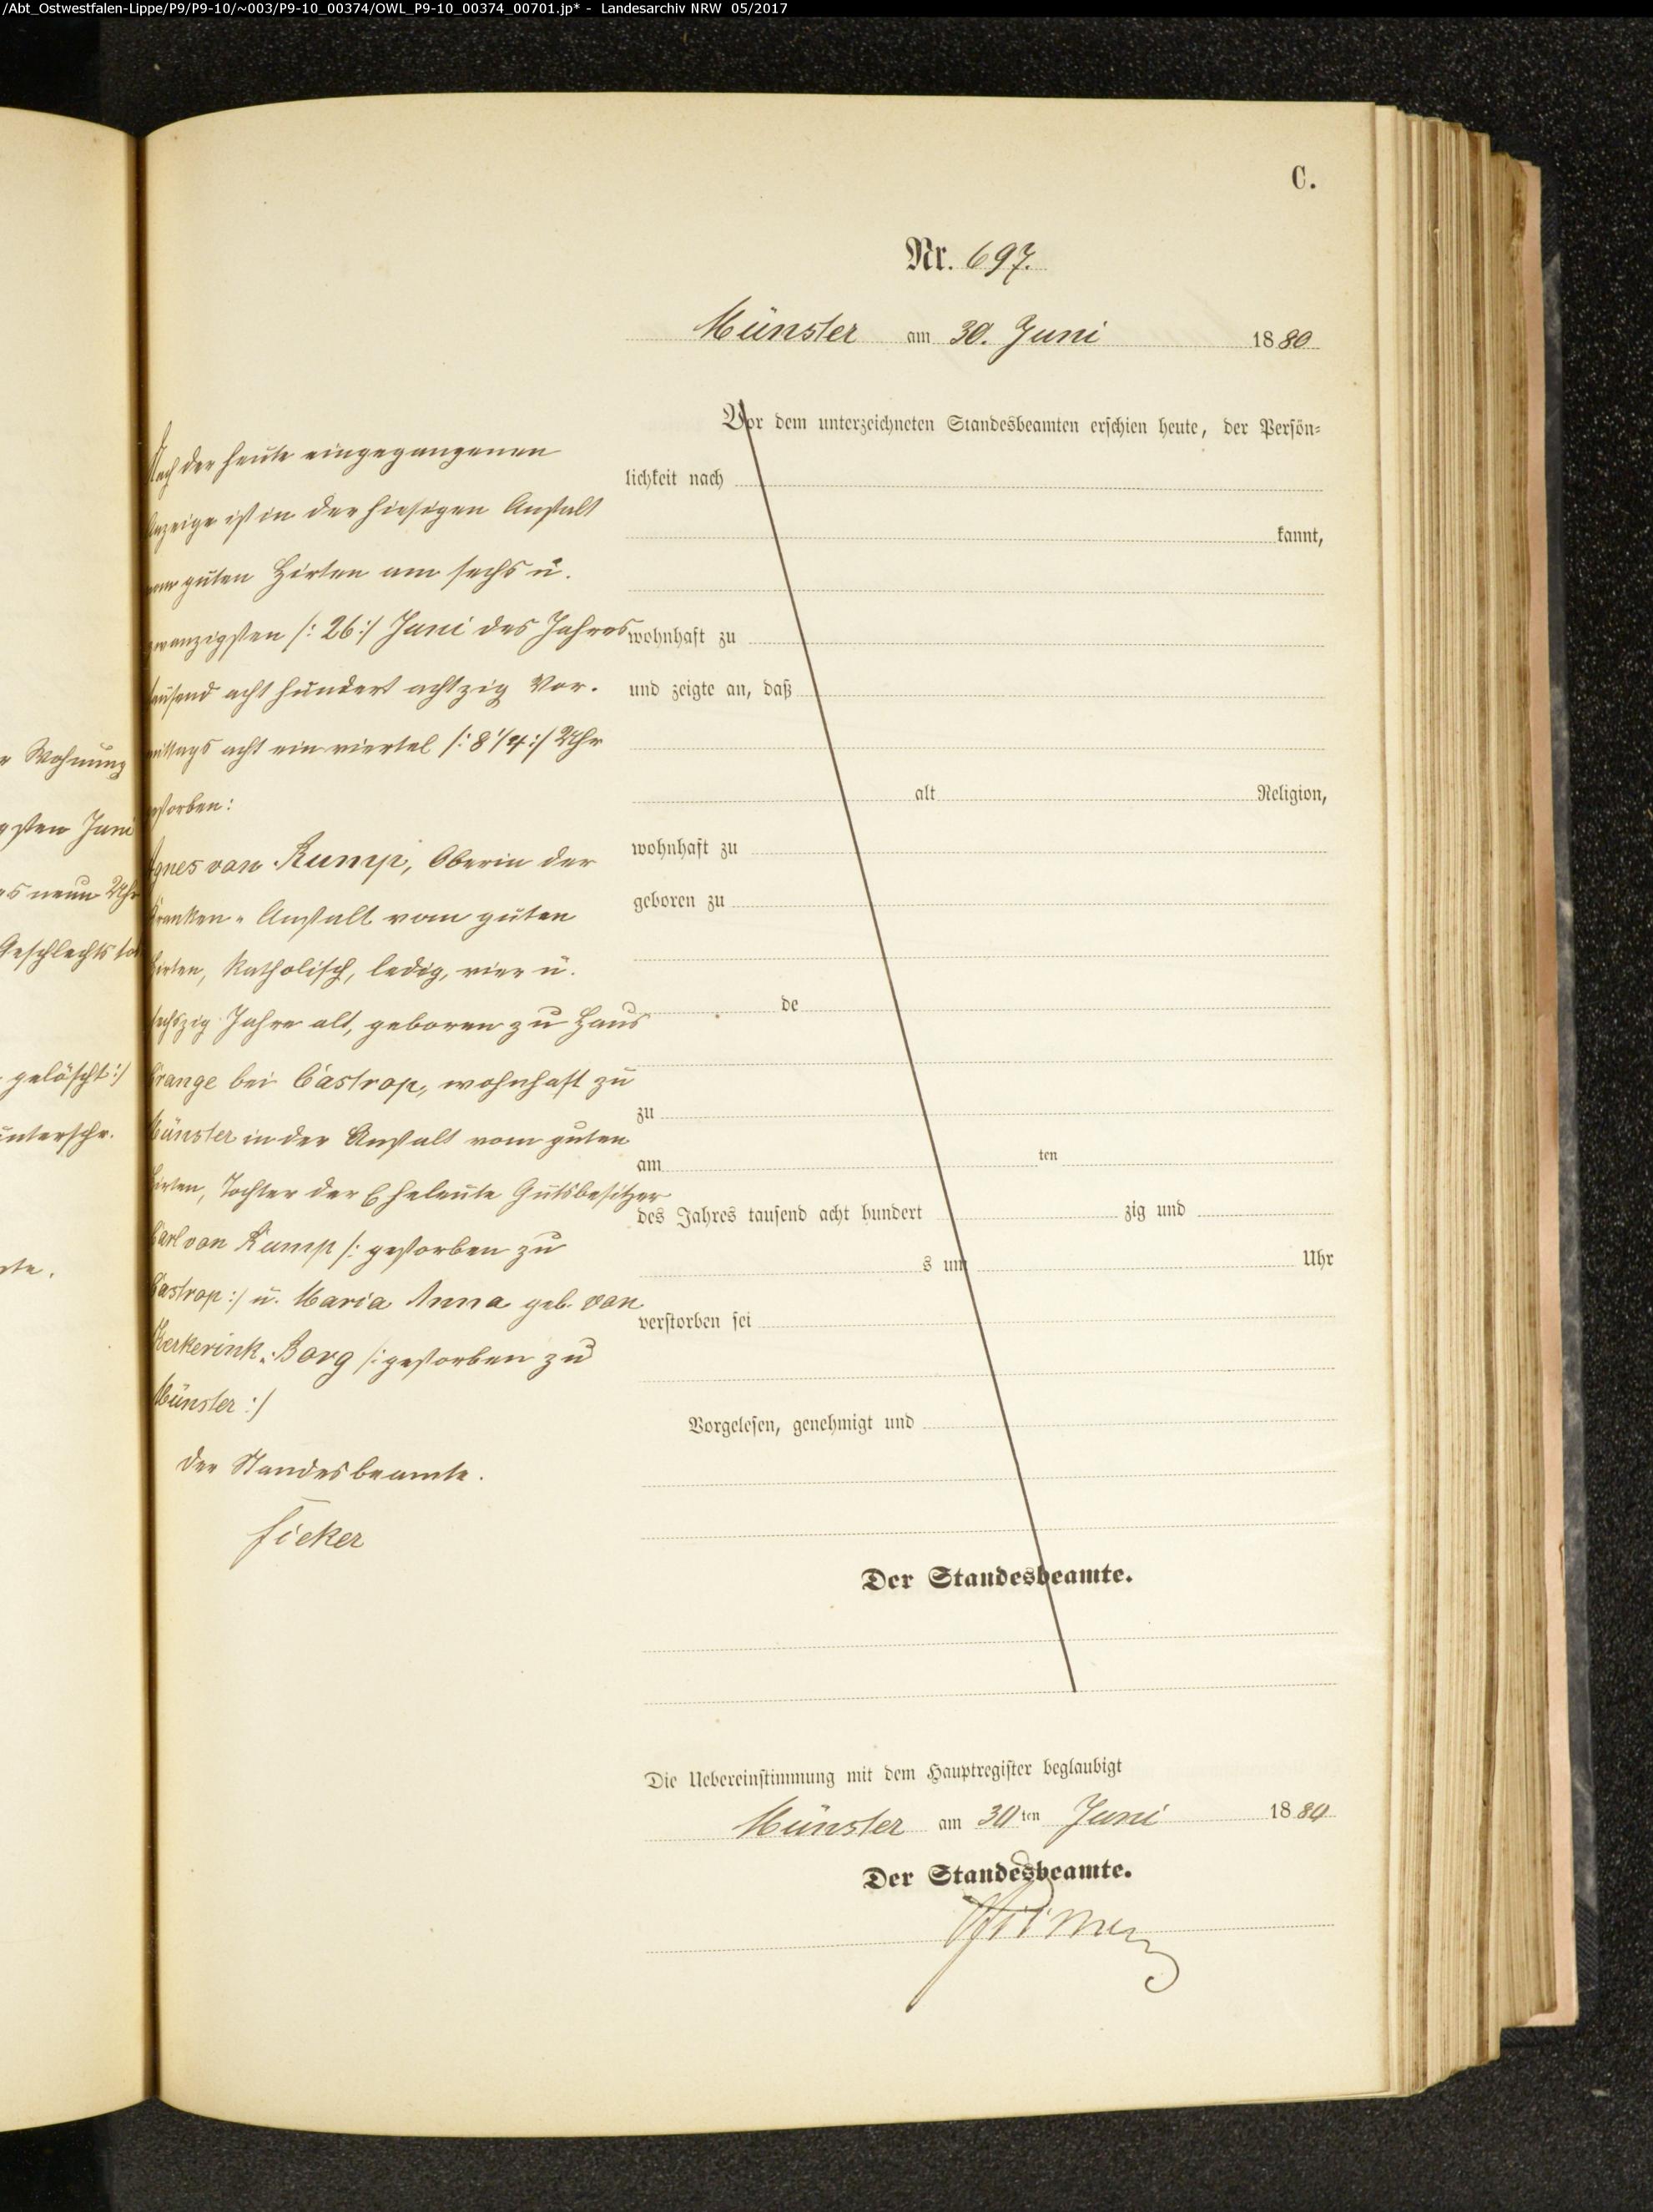 /Abt_Ostwestfalen-Lippe/P9/P9-10/~003/P9-10_00374/OWL_P9-10_00374_00701.jp* - Landesarchiv NRW 05/2017
C.
Nr. 697.
Münster am 30. Juni 1880
Nach der heute eingegangenen
Anzeige ist in der hiesigen Anstalt
vom guten Hirten am sechs u.
zwanzigsten /: 26 :/ Juni des Jahres
tausend acht hundert achtzig Vor-
mittags acht ein viertel /: 8 1/4 :/ Uhr
gestorben:
Agnes von Rump, Oberin der
Kranken-Anstalt vom guten
Hirten, katholisch, ledig, vier u.
sechszig Jahre alt, geboren zu Haus
Crange bei Castrop, wohnhaft zu
Münster in der Anstalt vom guten
Hirten, Tochter der Eheleute Gutsbesitzer
Carl von Rump /: gestorben zu
Castrop :/ u. Maria Anna geb. von
Kerkerink-Borg /: gestorben zu
Münster :/
Der Standesbeamte.
Ficker
Vor dem unterzeichneten Standesbeamten erschien heute, der Persön-
lichkeit nach
kannt,
wohnhaft zu
und zeigte an, daß
alt Religion,
wohnhaft zu
geboren zu
de
zu
am ten
des Jahres tausend acht hundert zig und
s um Uhr
verstorben sei
Vorgelesen, genehmigt und
Der Standesbeamte.
Die Uebereinstimmung mit dem Hauptregister beglaubigt
Münster am 30ten Juni 1880
Der Standesbeamte.
r Wohnung
gsten Juni
es neun Uhr
Geschlechts
gelöscht :/
unterschr.